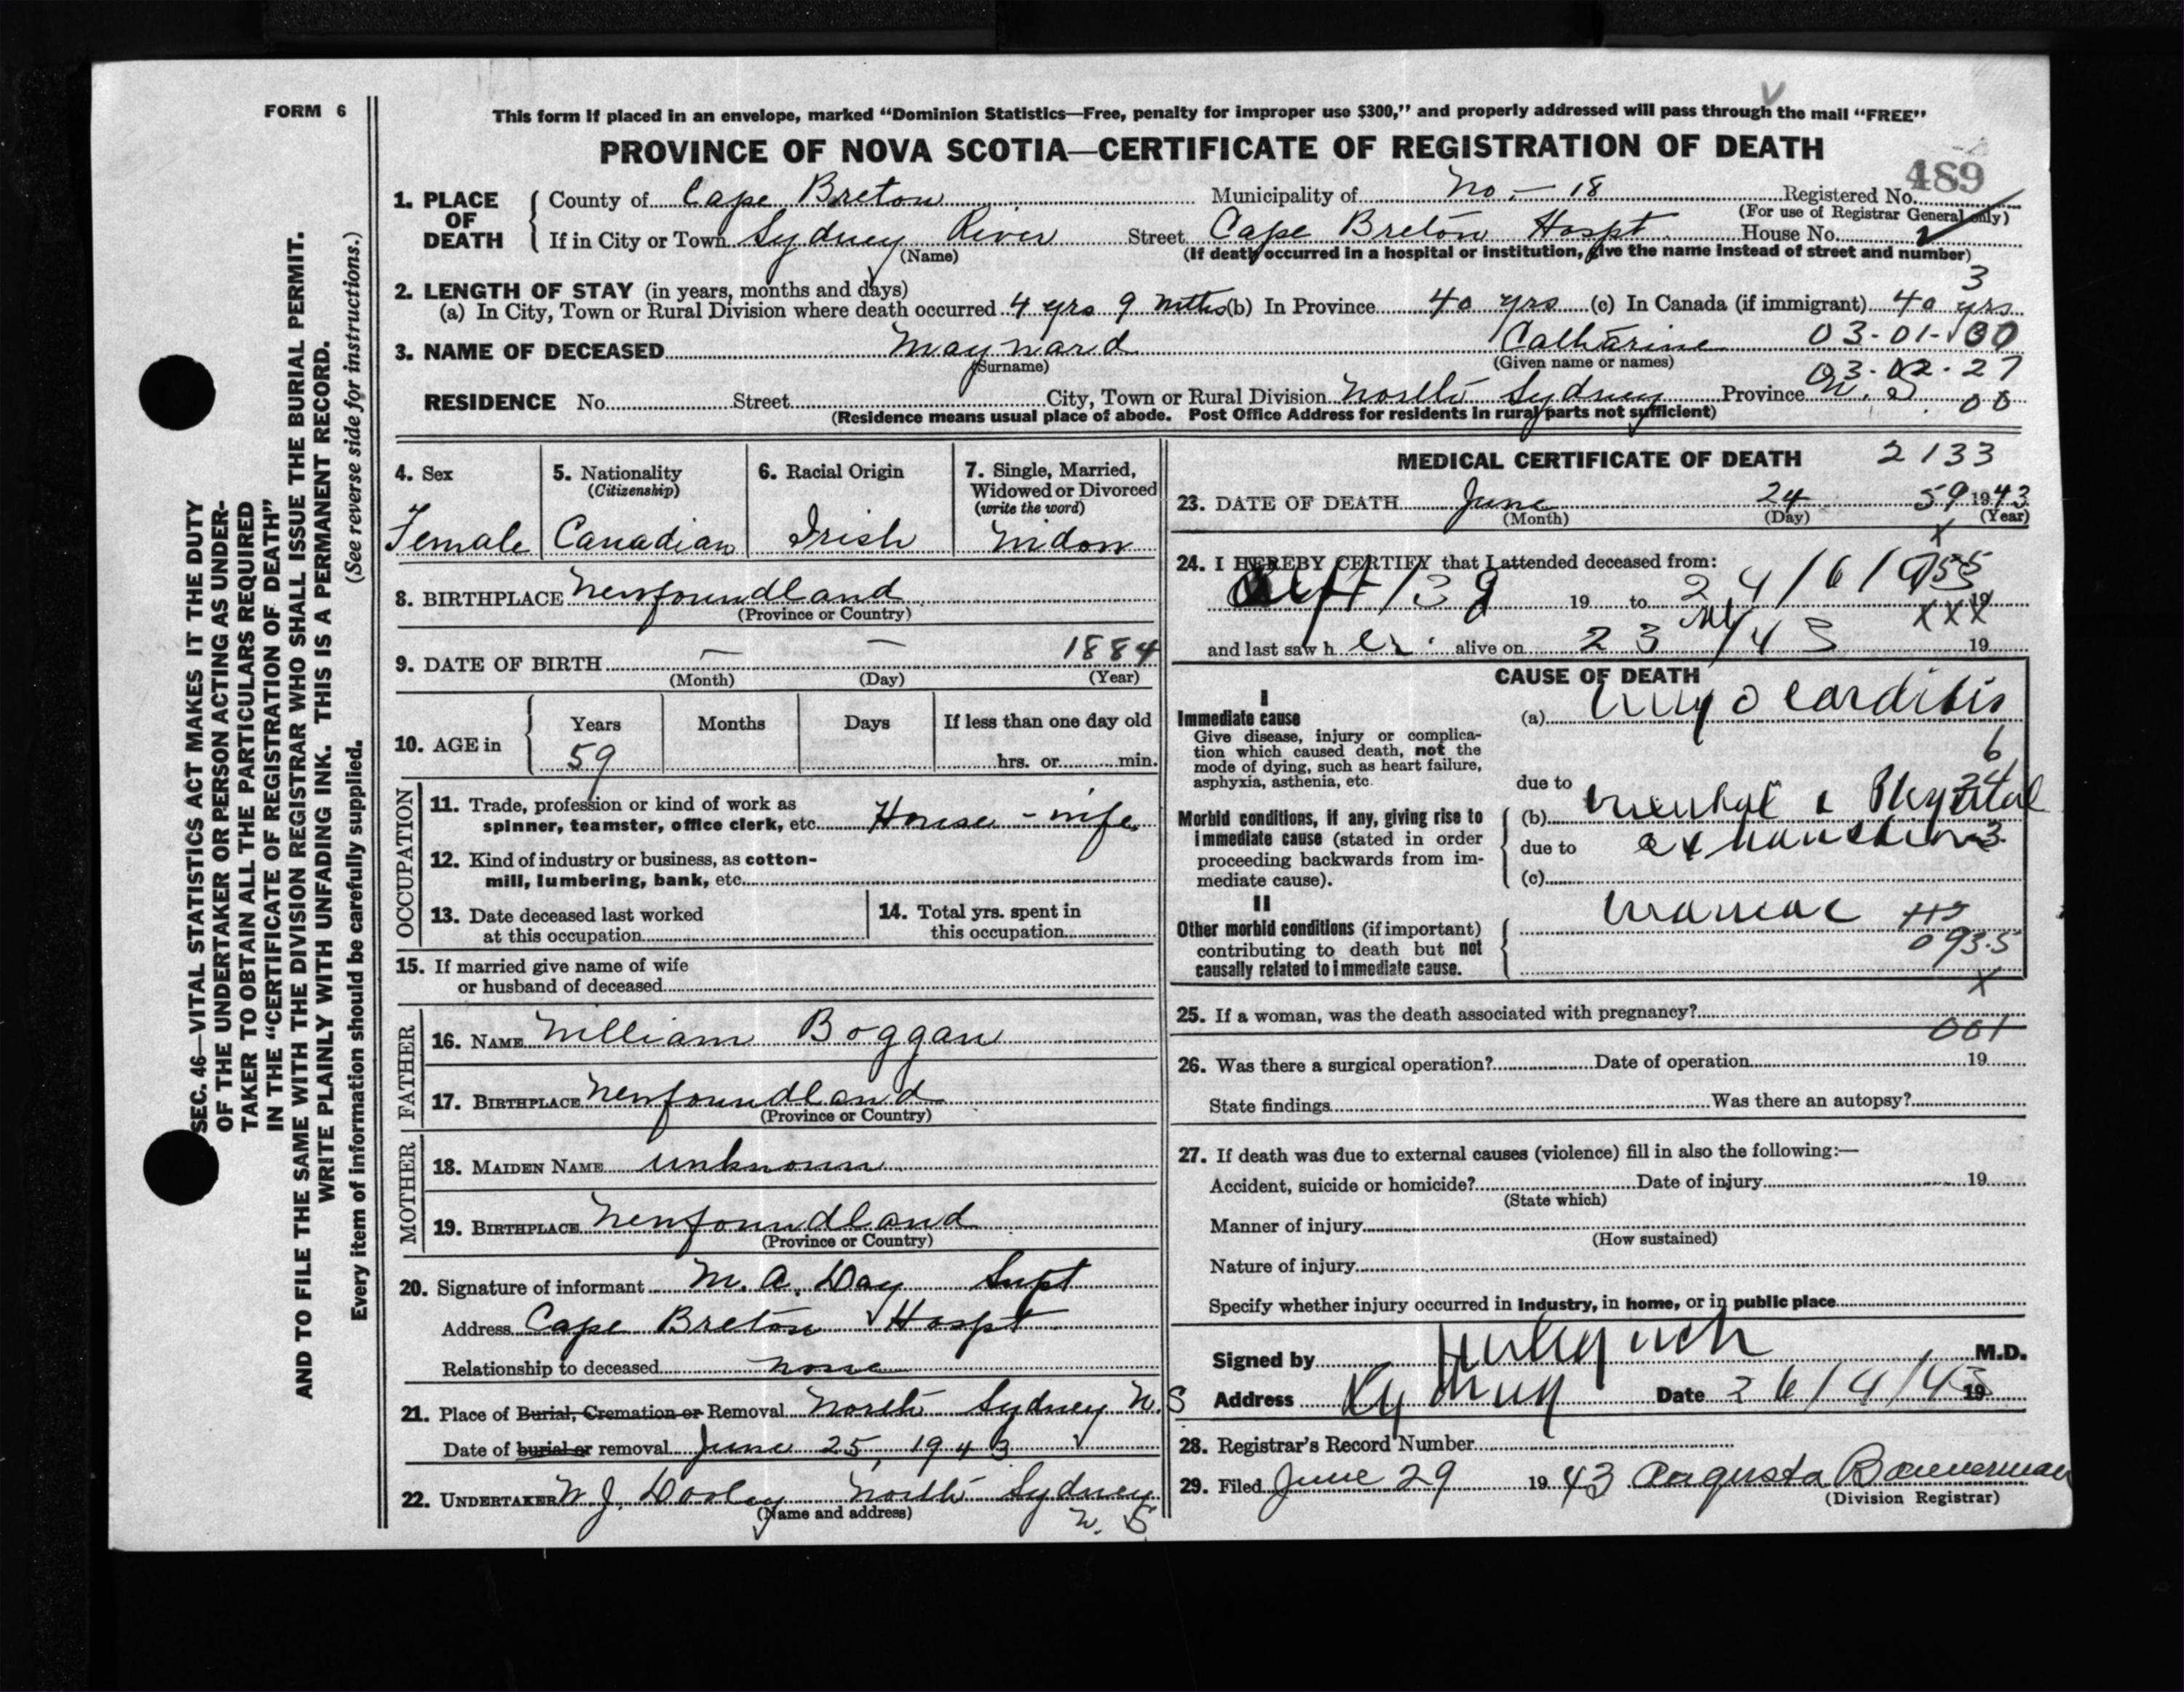 FORM 6
This form if placed in an envelope, marked "Dominion Statistics—Free, penalty for improper use $300," and properly addressed will pass through the mail "FREE"
PROVINCE OF NOVA SCOTIA—CERTIFICATE OF REGISTRATION OF DEATH
489
1. PLACE OF DEATH { County of Cape Breton Municipality of No. - 18 Registered No.
(For use of Registrar General only)
If in City or Town Sydney River Street Cape Breton Hospt. House No.
(Name) (If death occurred in a hospital or institution, give the name instead of street and number)
3
2. LENGTH OF STAY (in years, months and days)
(a) In City, Town or Rural Division where death occurred 4 yrs 9 mths (b) In Province 40 yrs (c) In Canada (if immigrant) 40 yrs
3. NAME OF DECEASED Maynard Catharine 03-01-
(Surname) (Given name or names)
03-02-27
RESIDENCE No. Street City, Town or Rural Division North Sydney Province N. S. 00
(Residence means usual place of abode. Post Office Address for residents in rural parts not sufficient)
4. Sex 5. Nationality 6. Racial Origin 7. Single, Married,
(Citizenship) Widowed or Divorced
(write the word)
Female Canadian Irish Widow
8. BIRTHPLACE Newfoundland
(Province or Country)
9. DATE OF BIRTH — — 1884
(Month) (Day) (Year)
10. AGE in { Years Months Days If less than one day old
59 hrs. or min.
OCCUPATION
11. Trade, profession or kind of work as
spinner, teamster, office clerk, etc. House - wife
12. Kind of industry or business, as cotton-
mill, lumbering, bank, etc.
13. Date deceased last worked
at this occupation
14. Total yrs. spent in
this occupation
15. If married give name of wife
or husband of deceased
FATHER
16. NAME William Boggan
17. BIRTHPLACE Newfoundland
(Province or Country)
MOTHER
18. MAIDEN NAME unknown
19. BIRTHPLACE Newfoundland
(Province or Country)
20. Signature of informant M. A. Day Supt
Address Cape Breton Hospt
Relationship to deceased none
21. Place of Burial, Cremation or Removal North Sydney N. S
Date of burial or removal June 25, 1943
22. UNDERTAKER W. J. Dooley North Sydney
(Name and address) N. S
MEDICAL CERTIFICATE OF DEATH 2133
23. DATE OF DEATH June 24 59 1943
(Month) (Day) (Year)
X
24. I HEREBY CERTIFY that I attended deceased from:
/39 19 to 24/6/ 19
XXX
and last saw h er alive on 23 /43 19
CAUSE OF DEATH
I
Immediate cause
Give disease, injury or complica-
tion which caused death, not the
mode of dying, such as heart failure,
asphyxia, asthenia, etc.
(a) Myocarditis
6
24
due to
Morbid conditions, if any, giving rise to
immediate cause (stated in order
proceeding backwards from im-
mediate cause).
(b) mental & Physical
due to exhaustion 3
(c)
II
Other morbid conditions (if important)
contributing to death but not
causally related to immediate cause.
maniac
093.5
X
25. If a woman, was the death associated with pregnancy?
001
26. Was there a surgical operation? Date of operation 19
State findings Was there an autopsy?
27. If death was due to external causes (violence) fill in also the following:—
Accident, suicide or homicide? Date of injury 19
(State which)
Manner of injury
(How sustained)
Nature of injury
Specify whether injury occurred in industry, in home, or in public place
Signed by M.D.
Address Date 19
28. Registrar's Record Number
29. Filed June 29 1943 Augusta Bannerman
(Division Registrar)
SEC. 46—VITAL STATISTICS ACT MAKES IT THE DUTY
OF THE UNDERTAKER OR PERSON ACTING AS UNDER-
TAKER TO OBTAIN ALL THE PARTICULARS REQUIRED
IN THE "CERTIFICATE OF REGISTRATION OF DEATH"
AND TO FILE THE SAME WITH THE DIVISION REGISTRAR WHO SHALL ISSUE THE BURIAL PERMIT.
WRITE PLAINLY WITH UNFADING INK. THIS IS A PERMANENT RECORD.
Every item of information should be carefully supplied. (See reverse side for instructions.)